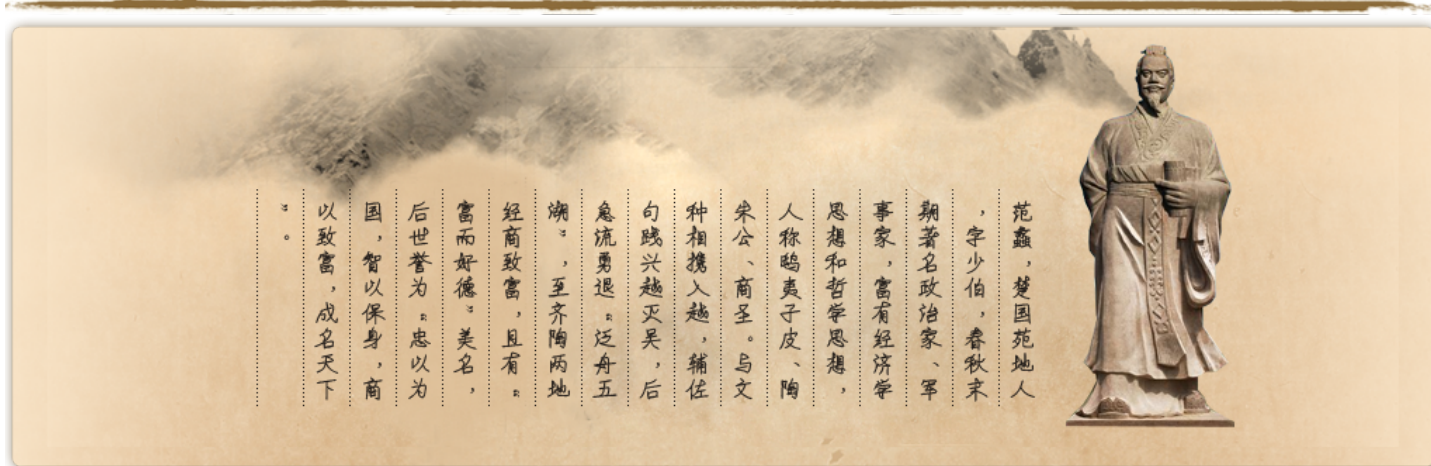 范蠡，楚国苑地人
，字少伯，春秋末
期著名政治家、军
事家，富有经济学
思想和哲学思想，
人称鸱夷子皮、陶
朱公、商圣。与文
种相携入越，辅佐
句践兴越灭吴，后
急流勇退“泛舟五
湖”，至齐陶两地
经商致富，且有“
富而好德”美名，
后世誉为“忠以为
国，智以保身，商
以致富，成名天下
”。